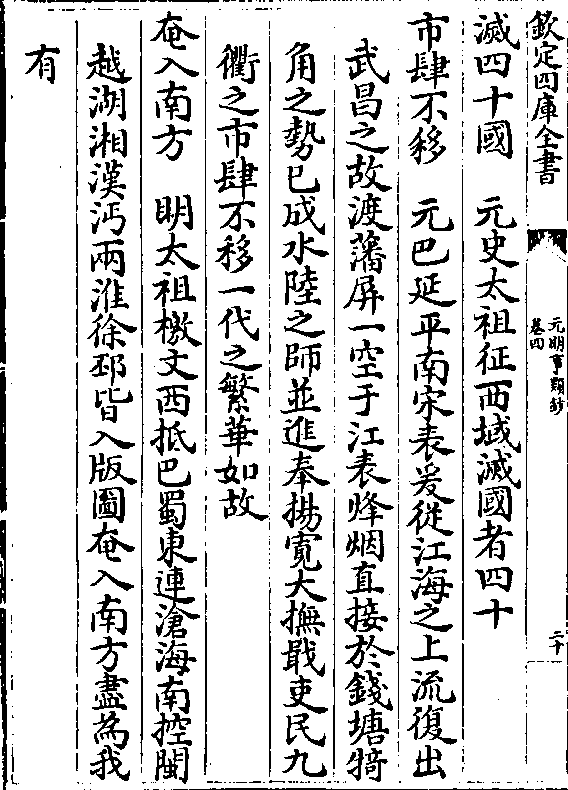 欽定四庫全書
元明事類鈔
卷四
二十
滅四十國　元史太祖征西域滅國者四十
市肆不移　元巴延平南宋表爰從江海之上流復出
武昌之故渡藩屏一空于江表烽烟直接於錢塘犄
角之勢已成水陸之師並進奉揚寛大撫戢吏民九
衢之市肆不移一代之繁華如故
奄入南方　明太祖檄文西抵巴蜀東連滄海南控閩
越湖湘漢沔兩淮徐邳皆入版圖奄入南方盡為我
有